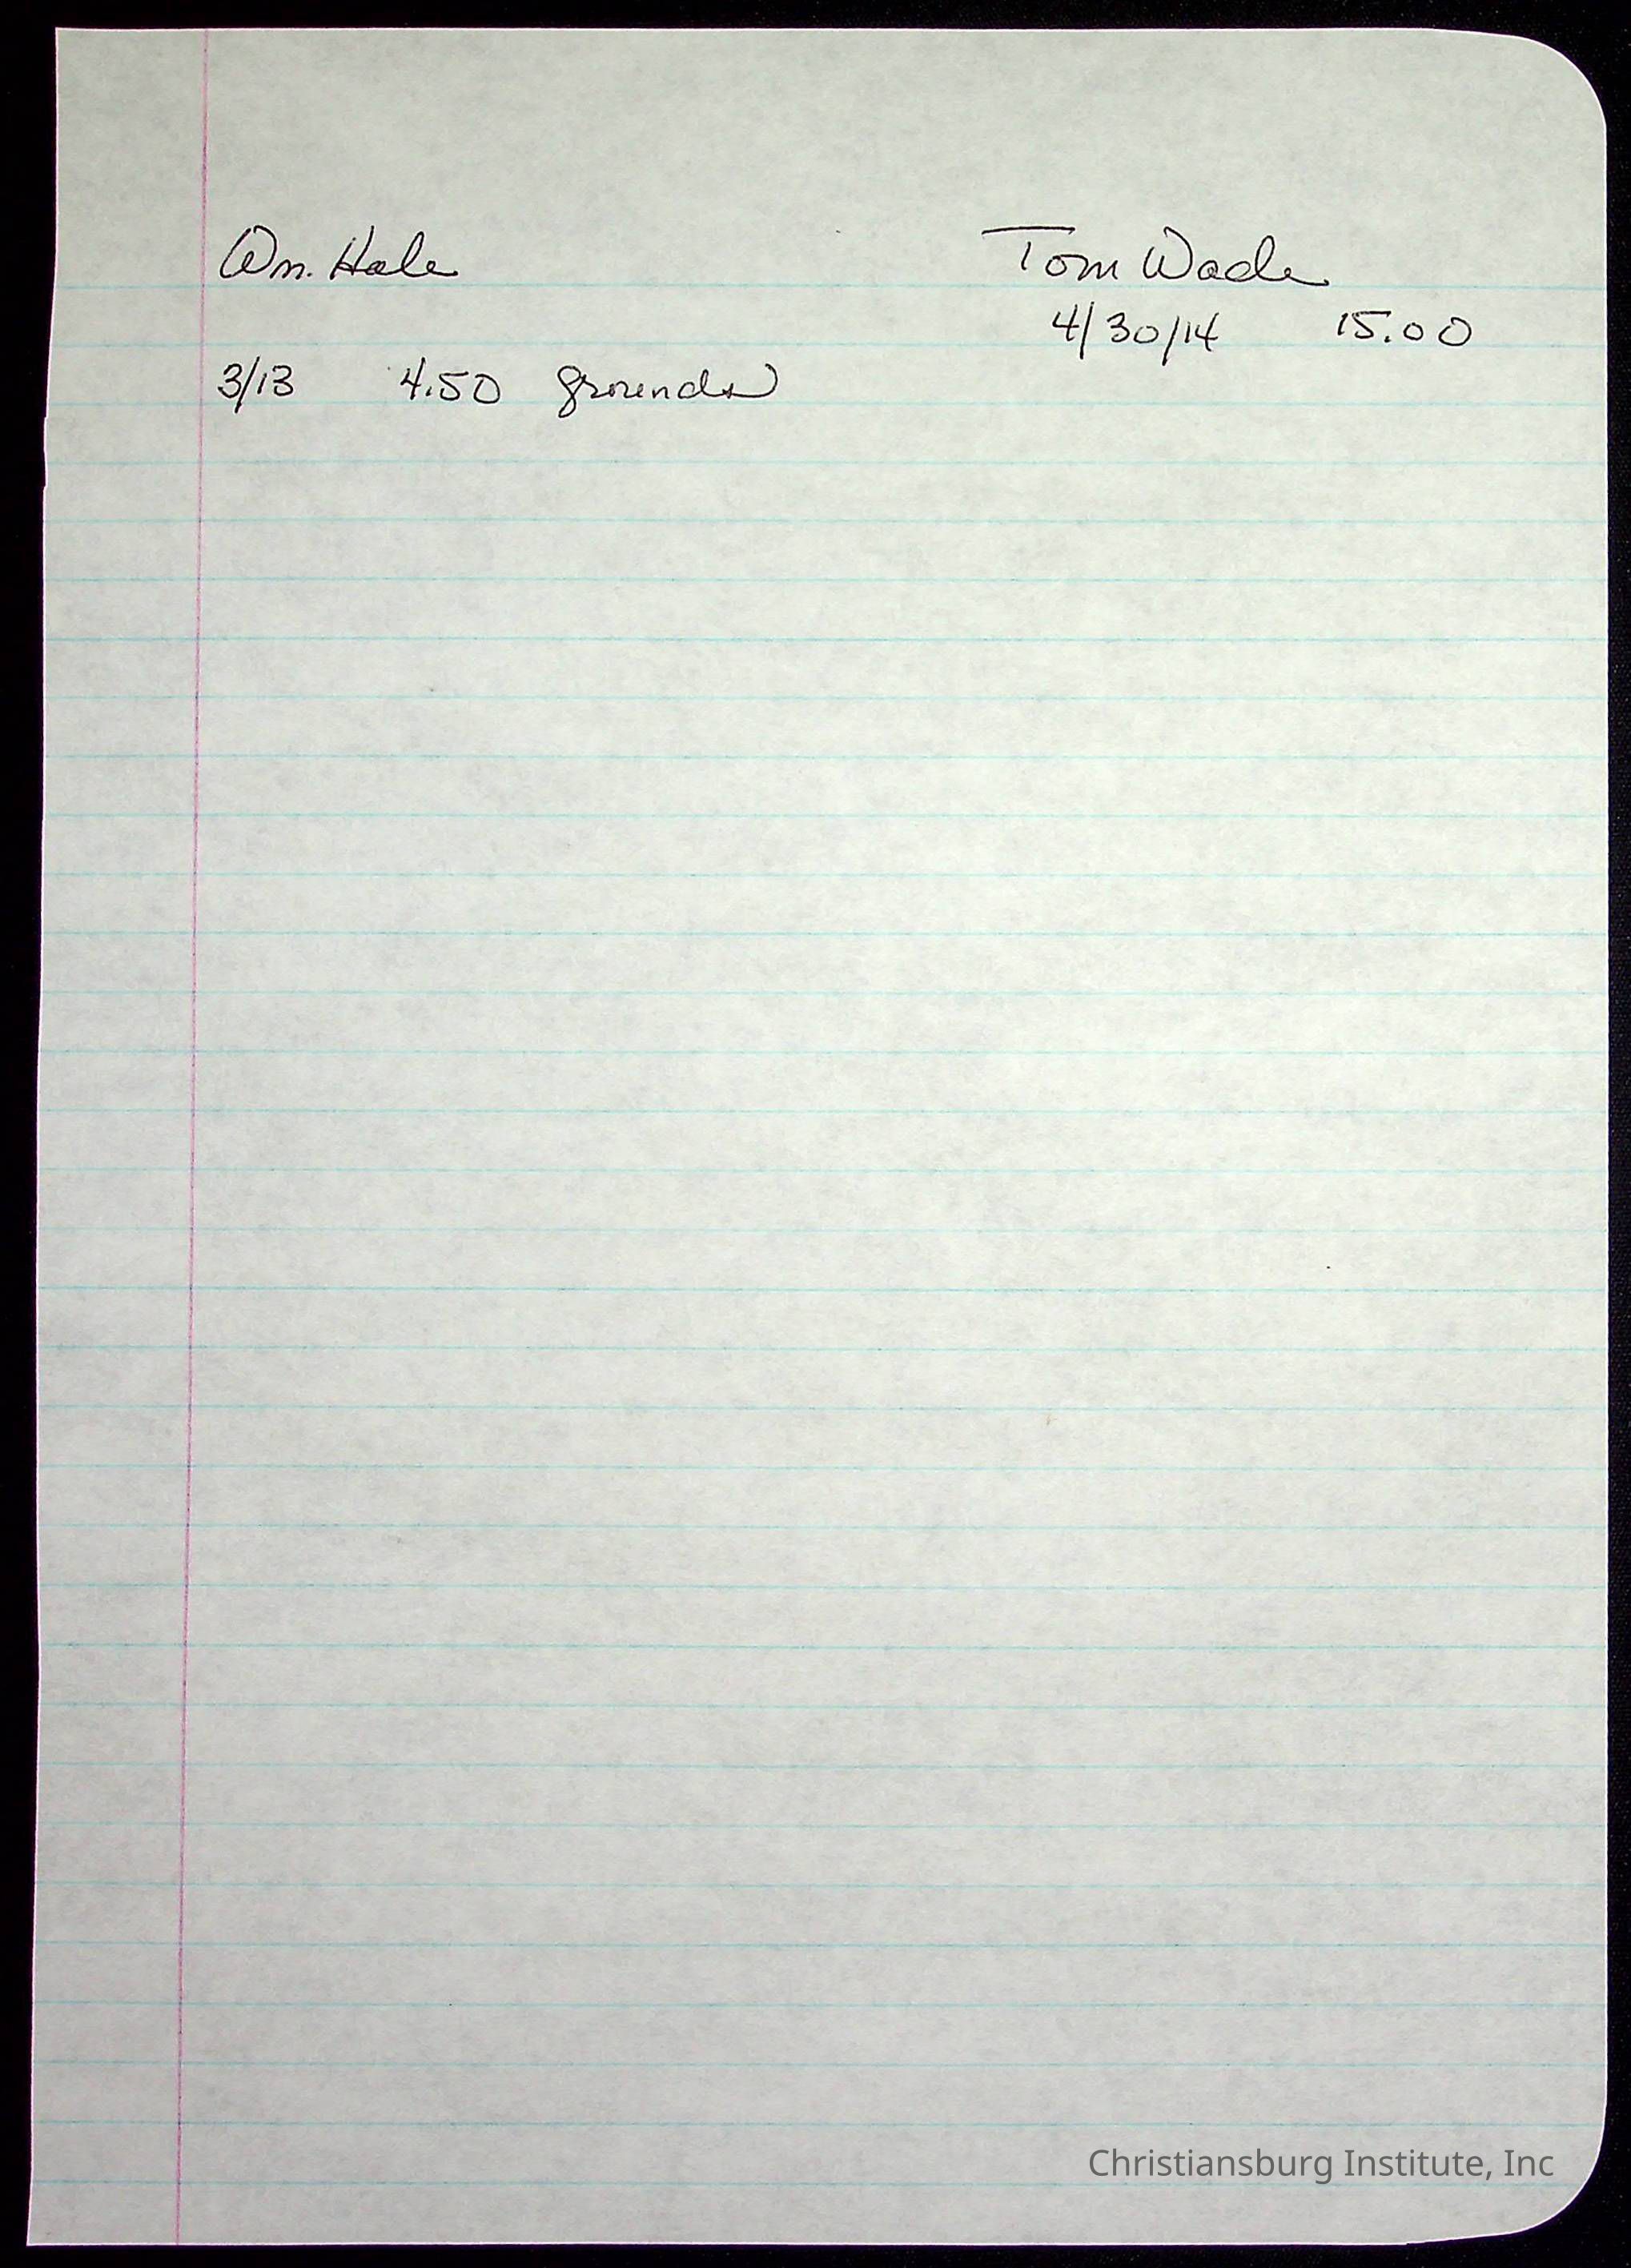 Wm. Hale
3/13 4.50 grounds
Tom Wade
4/30/14 15.00
Christiansburg Institute, Inc